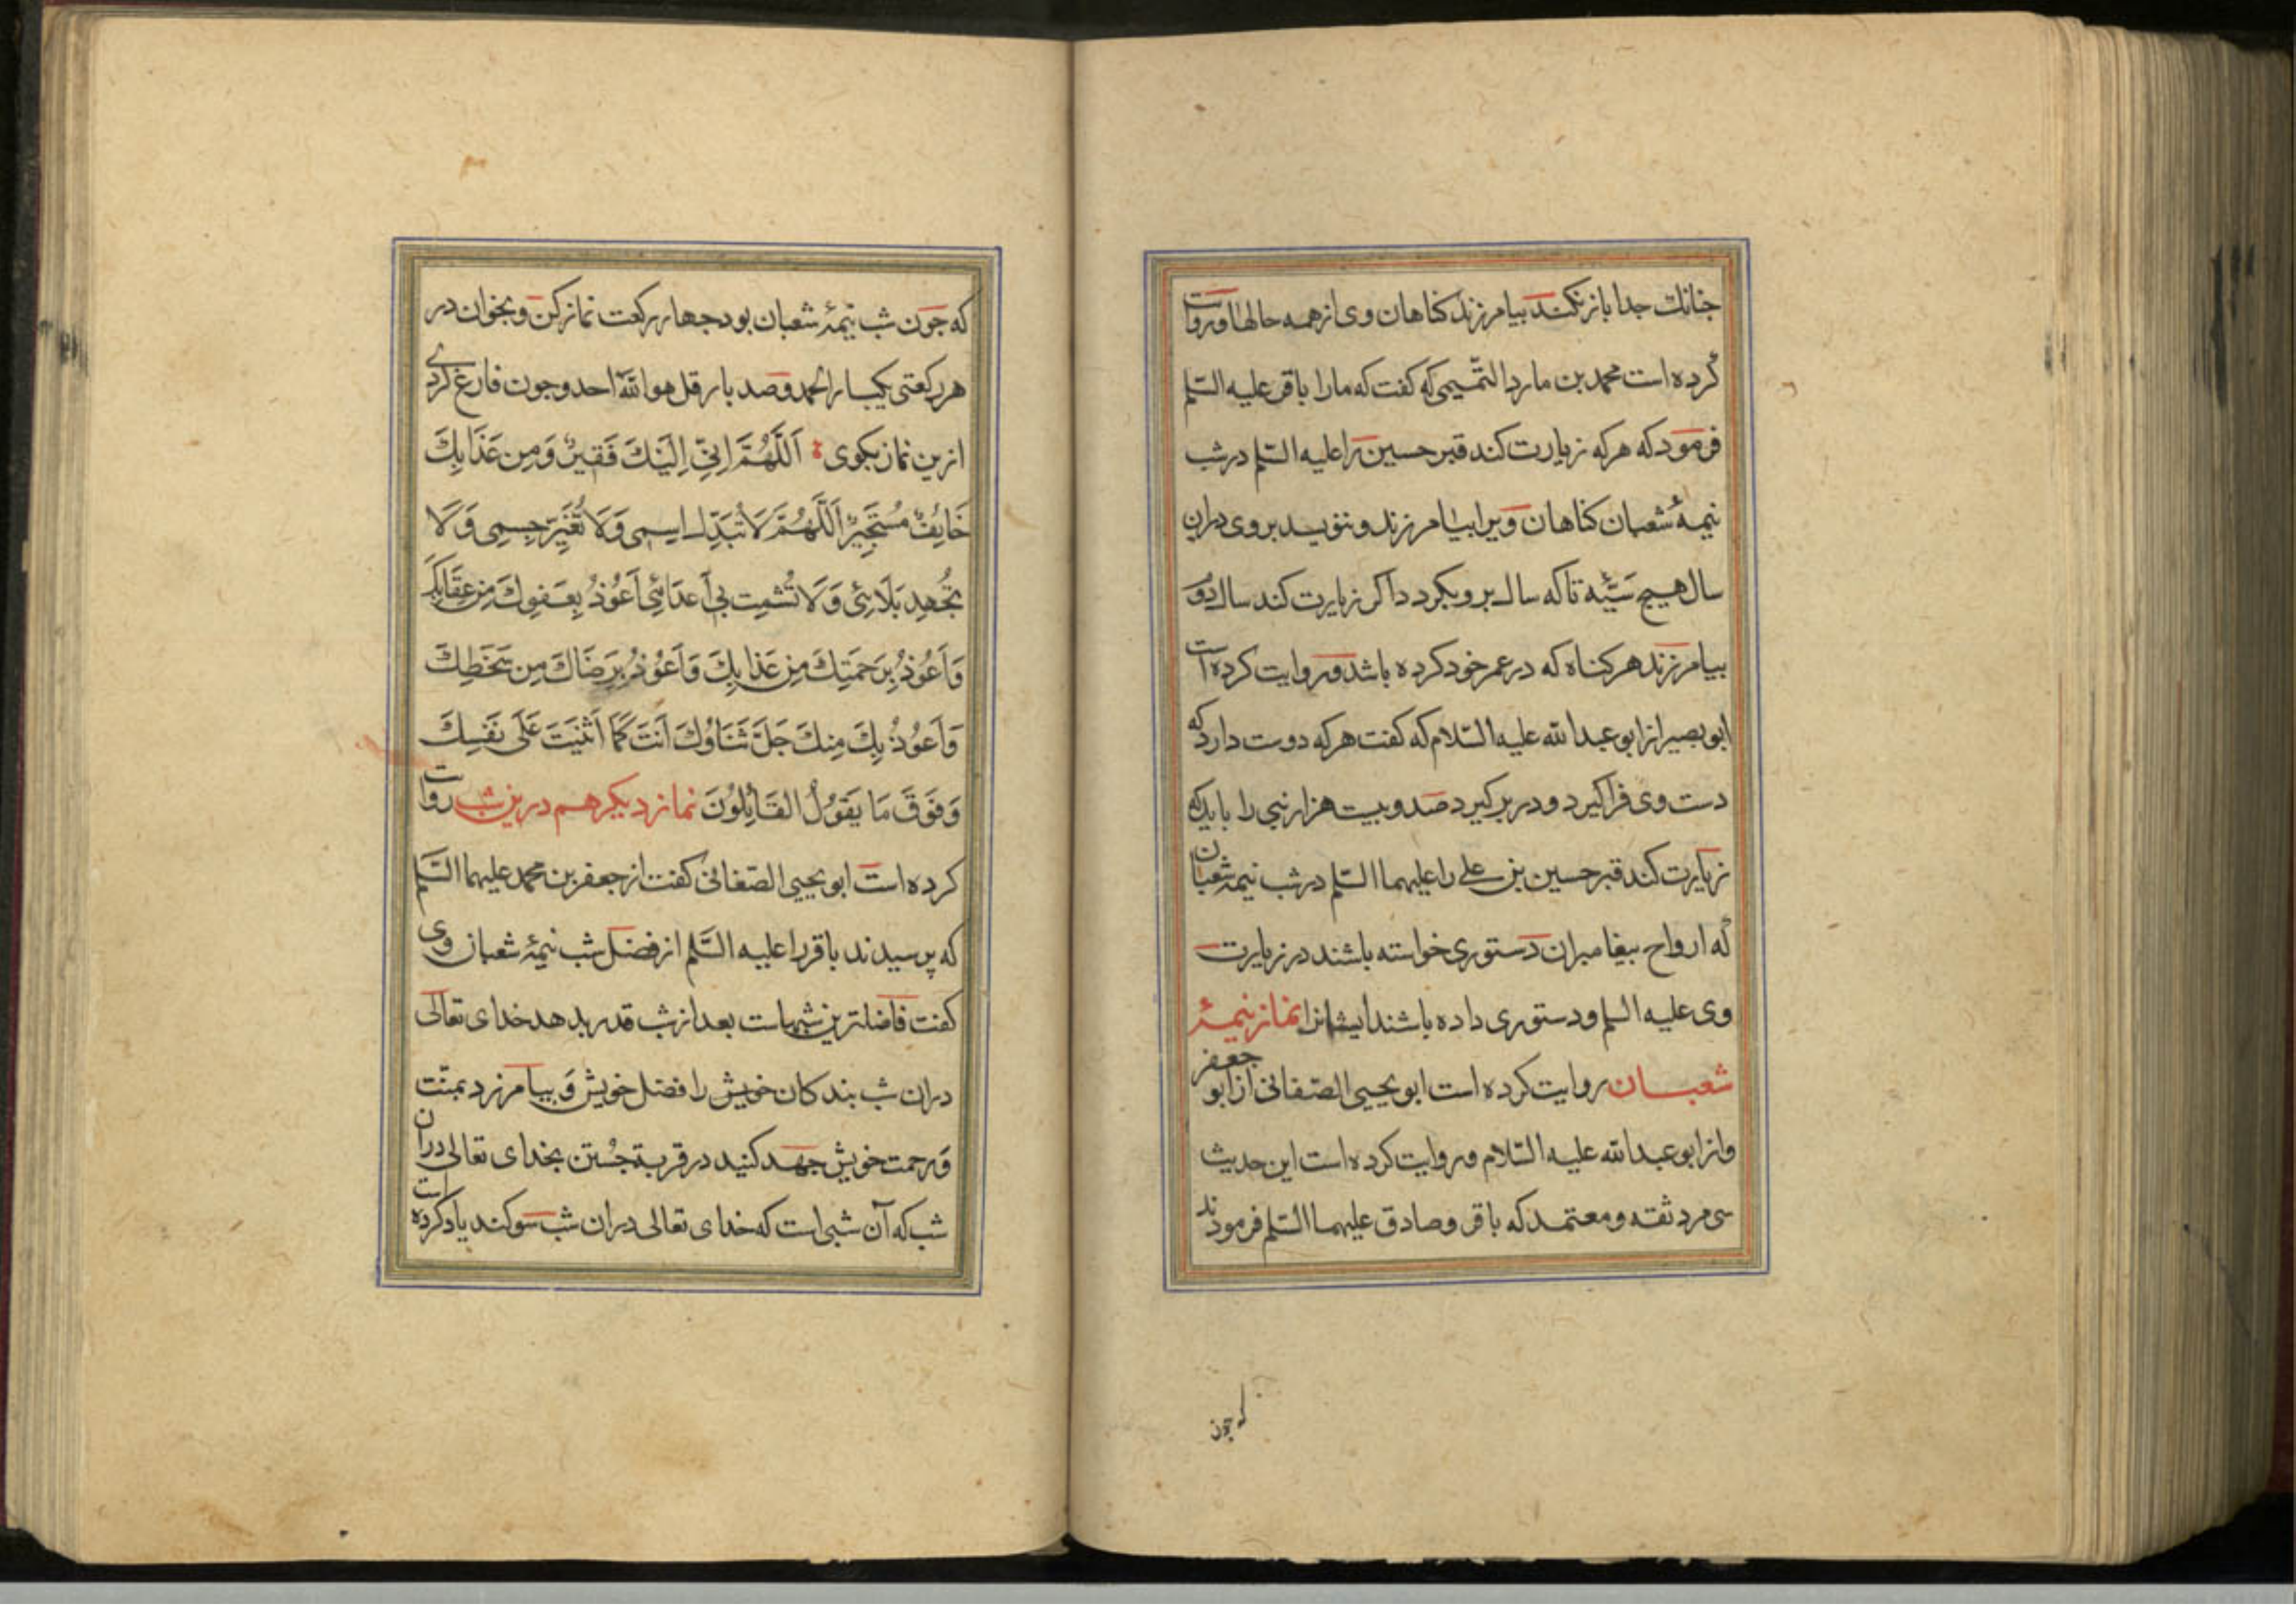 جنانك جدا باز نكند بيامرزند كناهان وى از همه حالها وروايت
كرده است محمد بن مارد التميمى كه كفت كه مارا باقر عليه السلم
فرمود كه هركه زيارت كند قبر حسين را عليه السلم در شب
نيمهٔ شعبان كناهان ويرا بيامرزند و ننويسد بر وى دران
سال هيج سيّئه تا كه سال برو بكردد اكر زيارت كند سال دوم
بيامرزند هر كناه كه در عمر خود كرده باشد وروايت كرده است
ابو بصير از ابو عبدالله عليه السّلام كه كفت هركه دوست دارد كه
دست وى فرا كيرد و در بر كيرد صد و بيست هزار نبى را بايد كه
زيارت كند قبر حسين بن على را عليهما السلم در شب نيمهٔ شعبان
كه ارواح بيغامبران دستورى خواسته باشند در زيارت
وى عليه السلم و دستورى داده باشند ايشانرا نماز نيمهٔ
شعبان روايت كرده است ابو يحيى الصنعانى از ابو جعفر
و از ابو عبدالله عليه السّلام وروايت كرده است اين حديث
سى مرد ثقه و معتمد كه باقر و صادق عليهما السّلم فرمودند
كه جون
كه جون شب نيمهٔ شعبان بود جهار ركعت نماز كن و بخوان در
هر ركعتى يكبار الحمد و صد بار قل هو الله احد و جون فارغ كردى
ازين نماز بكوى اَللّٰهُمَّ اِنِّى اِلَيْكَ فَقِيرٌ وَمِن عَذَابِكَ
خَايِفٌ مُسْتَجِيرٌ اَللّٰهُمَّ لَا تُبَدِّل اِسمِى وَلَا تُغَيِّر جِسمِى وَلَا
تُجهِد بَلَائِى وَلَا تُشمِت بِى اَعدَائِى اَعُوذُ بِعَفوِكَ مِن عِقَابِكَ
وَاَعُوذُ بِرَحمَتِكَ مِن عَذَابِكَ وَاَعُوذُ بِرِضَاكَ مِن سَخَطِكَ
وَاَعوُذُ بِكَ مِنكَ جَلَّ ثَنَاوُكَ اَنتَ كَمَا اَثنَيتَ عَلَى نَفسِكَ
وَفَوقَ مَا يَقوُلُ القَائِلُونَ نماز ديكر هم درين شب روايت
كرده است ابو يحيى الصنعانى كفت از جعفر بن محمد عليهما السَّلم
كه پرسيدند باقر را عليه السَّلم از فضل شب نيمهٔ شعبان وى
كفت فاضلترين شبهاست بعد از شب قدر بدهد خداى تعالى
دران شب بندكان خويش را فضل خويش و بيامرزد بمنّت
و رحمت خويش جهد كنيد در قربة جُستن بخداى تعالى دران
شب كه آن شبى است كه خداى تعالى دران شب سوكند ياد كرده است